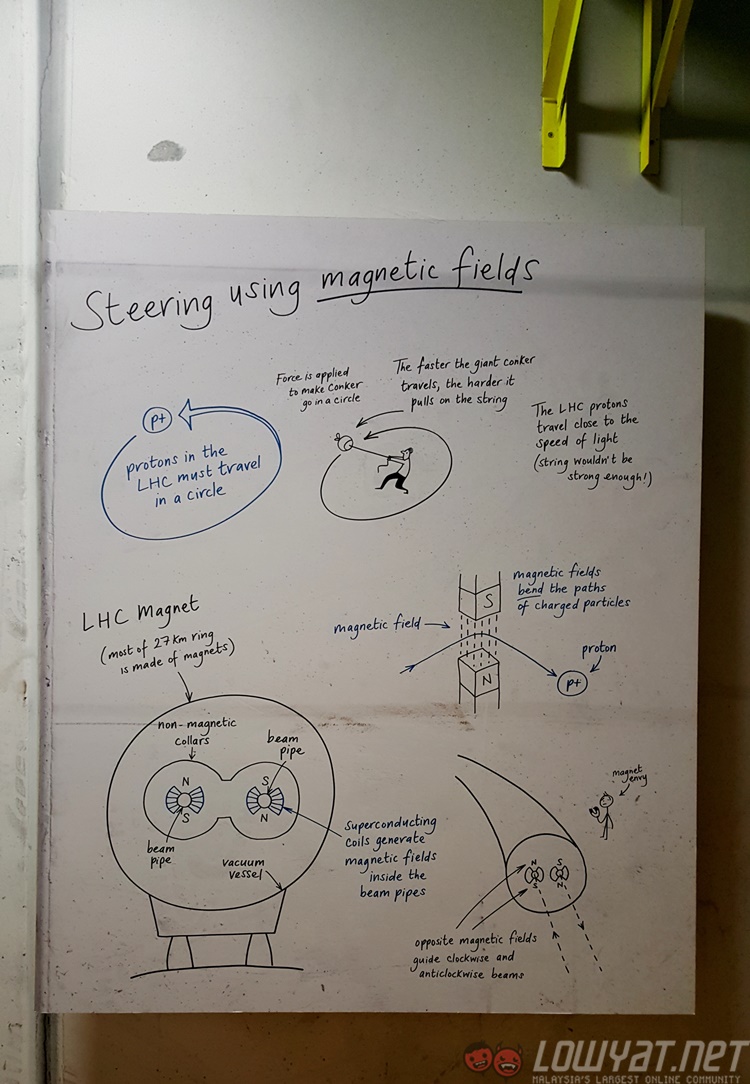 Steering using magnetic fields
p+
protons in the
LHC must travel
in a circle
Force is applied
to make conker
go in a circle
The faster the giant conker
travels, the harder it
pulls on the string
The LHC protons
travel close to the
speed of light
(string wouldn't be
strong enough!)
LHC magnet
(most of 27km ring
is made of magnets)
magnetic field
S
N
magnetic fields
bend the paths
of charged particles
proton
p+
non-magnetic
collars
beam
pipe
N
S
S
N
beam
pipe
vacuum
vessel
Superconducting
coils generate
magnetic fields
inside the
beam pipes
magnet
envy
N
S
S
N
opposite magnetic fields
guide clockwise and
anticlockwise beams
LOWYAT.NET
MALAYSIA'S LARGEST ONLINE COMMUNITY